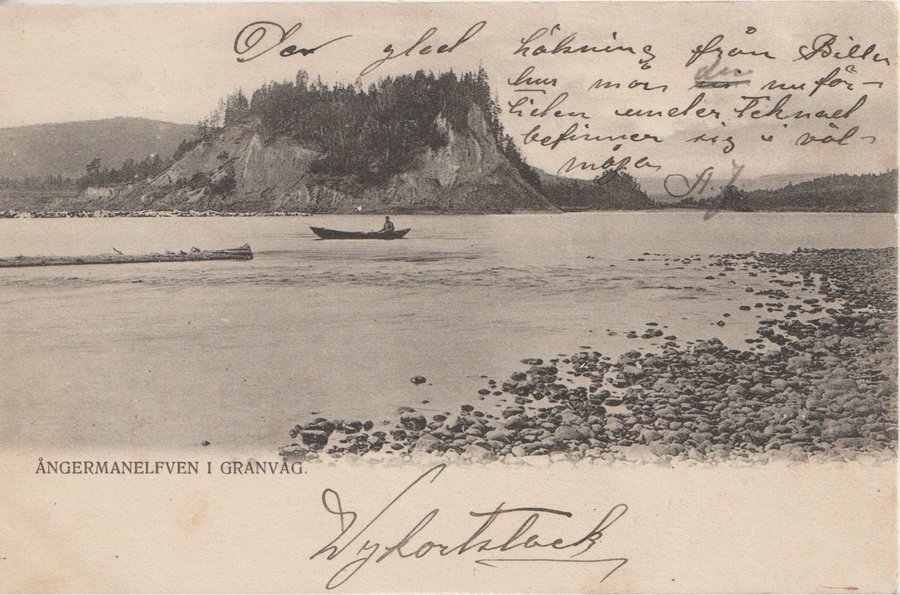 Den glad hälsning från Billa
hur mår du nuför-
tiden undertecknad
befinner sig i väl-
måga
A. J.
ÅNGERMANELFVEN I GRANVÅG.
Vykortstack